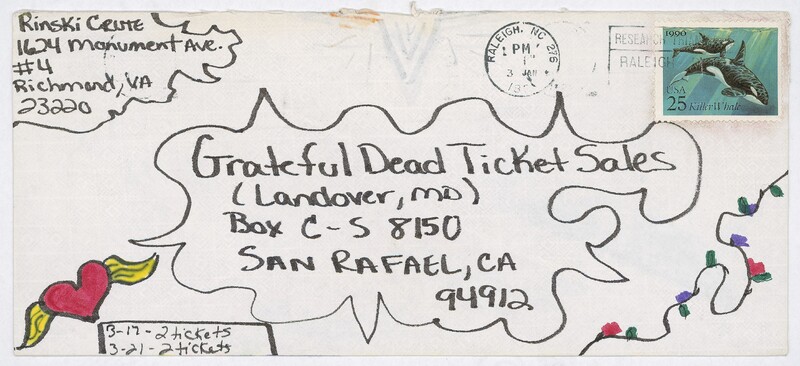 Rinski Crute
1624 Monument Ave.
#4
Richmond, VA
23220
RALEIGH, NC 276
PM
3 JAN
RESEARCH
RALEIGH
1990
USA
25 Killer Whale
Grateful Dead Ticket Sales
(Landover, MD)
Box C-S 8150
SAN RAFAEL, CA
94912
3-17-2tickets
3-21-2tickets